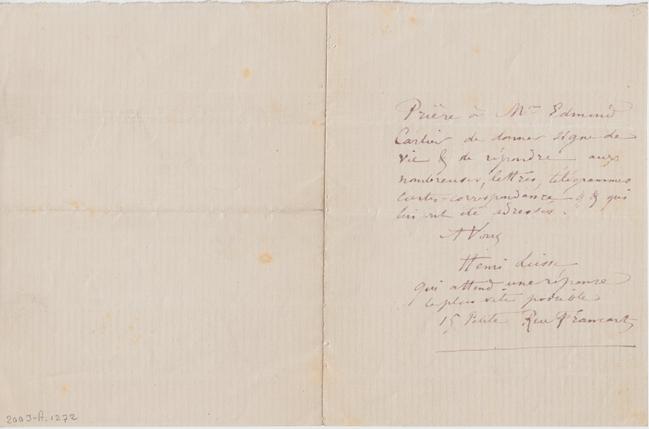 Prière à Mr Edmond
Cartier de donner signe de
vie & de répondre aux
nombreuses lettres, télégrammes
cartes-correspondance & & qui
lui ont été adressés.
A Vous
Henri
qui attend une réponse
le plus vite possible
15 Petite Rue
2003-A.1272